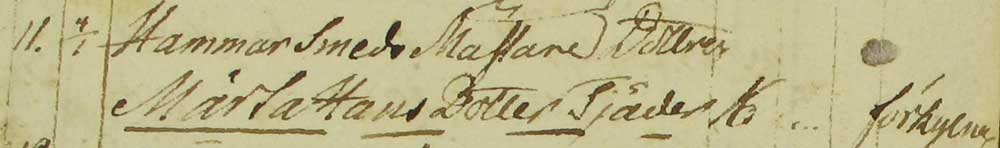 11. 4/1 Hammar Smeds Mästare Dottren
Märta Hans Dotter Tjäder ... förkylning